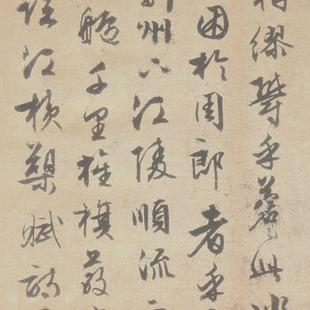 相繆鬱乎蒼
困於周郎者乎
州下江陵順流
舳千里旌旗蔽
江橫槊賦詩